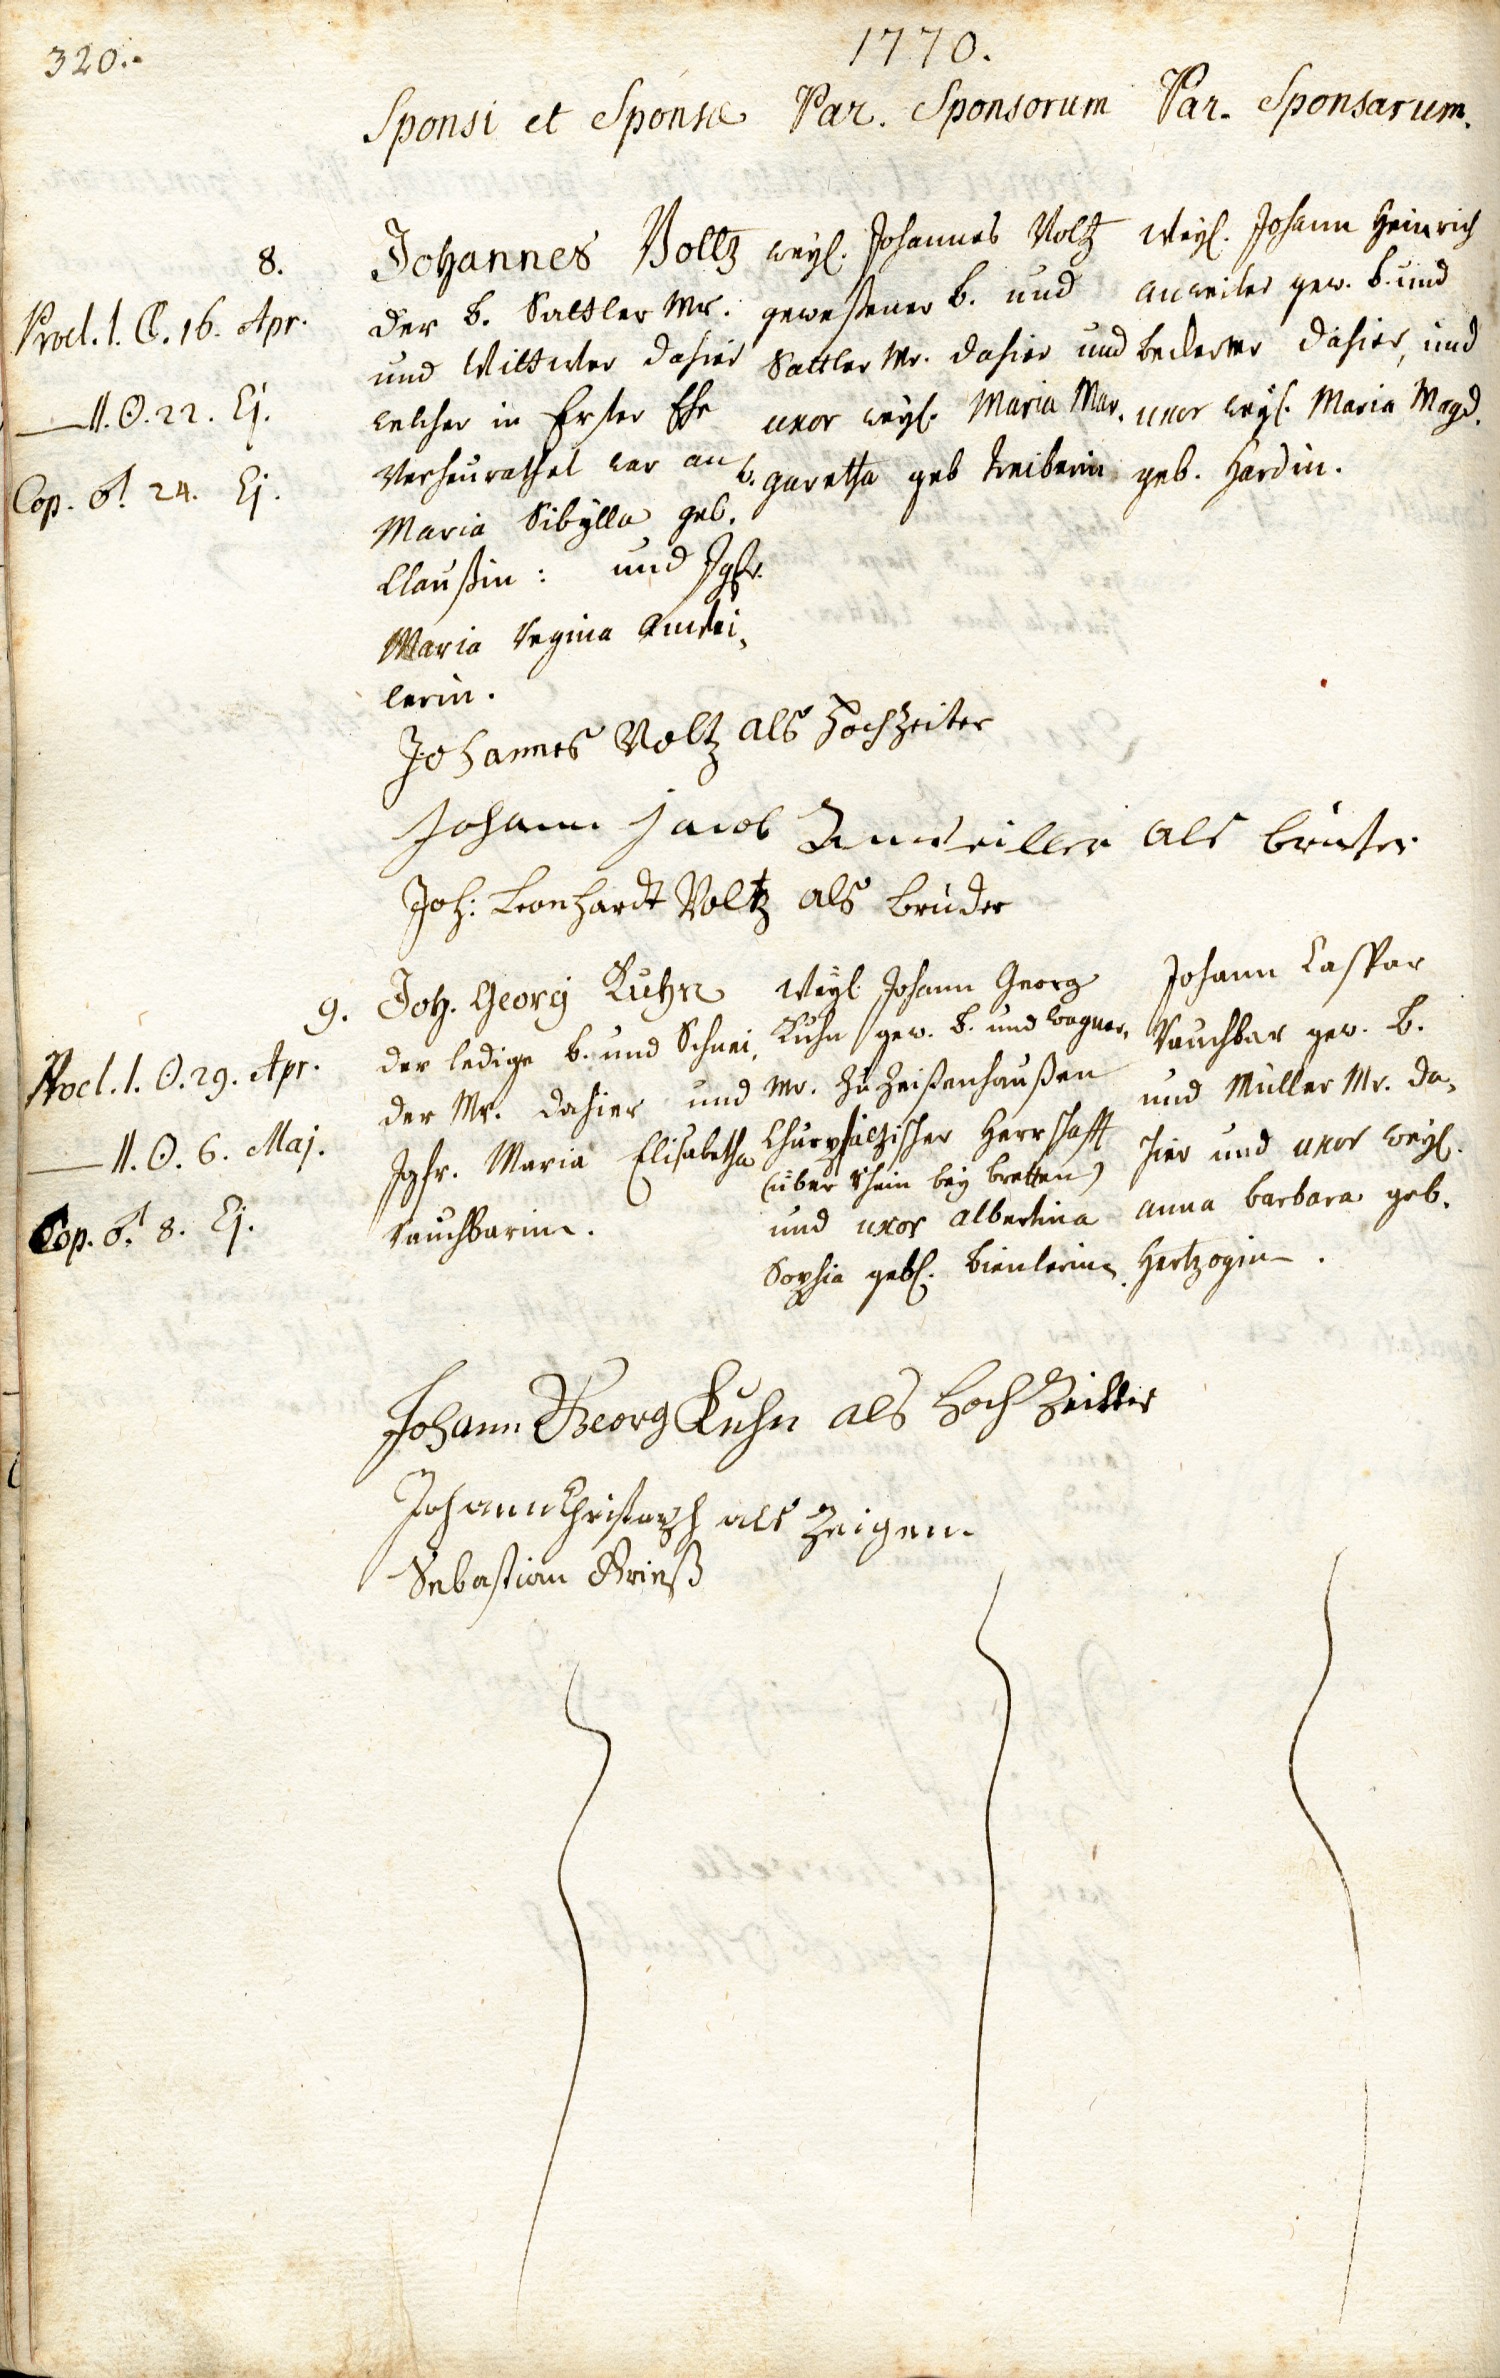 320.
1770.
Sponsi et Sponsæ Par. Sponsorum Par. Sponsarum.
8.
Procl. 1. 16. Apr.
11. ⊙. 22. Ej.
Cop. ♂ 24. Ej.
Johannes Voltz
der b. Sattler Mr.
und Wittwer dahier
welcher in Erster Ehe
Verheurathet war an
Maria Sibÿlla geb.
Claußin: und Jgfr.
Maria Regina Anwei„
lerin.
weyl. Johannes Voltz
geweßener b. und
Sattler Mr. dahier und
uxor weyl. Maria Mar„
garetha geb Treiberin
Weyl. Johann Heinrich
Anweiler gew. b. und
becker Mr dahier, und
uxor weyl. Maria Magd.
geb. Hardin.
Johannes Voltz als Hochzeiter
Johann Jacob Anweiller als bruter
Joh: Leonhardt Voltz als bruder
9.
Procl. 1. ⊙. 29. Apr.
11. ⊙. 6. Maj.
Cop. ♂ 8. Ej.
Joh. Georg Kuhn
der ledige b. und Schnei„
der Mr. dahier und
Jgfr. Maria Elisabetha
Rauchbarin.
Weyl. Johann Georg
Kuhn gew. b. und Wagner„
Mr. zu Zeißenhaußen
Churpfältzischer Herrschafft
(über Rhein bey bretten)
und uxor Albertina
Sophia gebl. Bienlerin.
Johann Caspar
Rauchbar gew. b.
und Müller Mr. da„
hier und uxor weyl.
Anna barbara geb.
Hertzogin.
Johann Georg Kuhn als Hoch Zeitter
Johann Christoph als Zeigen.
Sebastian Grieß